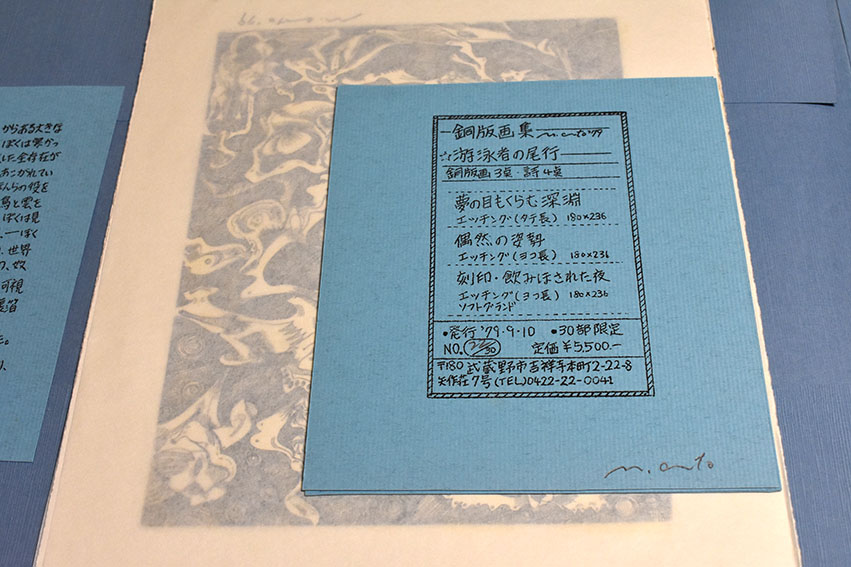 からある大きな
ぼくは寒かっ
いた全存在が
あこがれてい
ぼんらの役を
馬と雲を
ぼくは見
、一ぼく
、世界
可視
た。
一銅版画集 m.anto '79
☆游泳者の尾行
銅版画3点・詩4点
夢の目もくらむ深淵
エッチング(タテ長) 180×236
偶然の姿勢
エッチング(ヨコ長) 180×236
刻印・飲みほされた夜
エッチング(ヨコ長) 180×236
ソフトグランド
•発行'79・9・10 •30部限定
NO. /30 定価¥5,500.-
〒180 武蔵野市吉祥寺本町2-22-8
矢作荘7号(TEL)0422-22-0041
m. anto